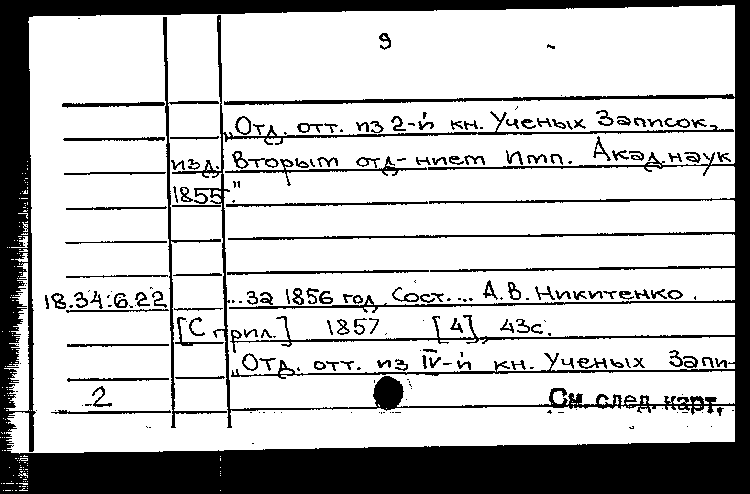 9
„Отд. отт. из 2-й кн. Ученых Записок,
изд. Вторым отд-нием Имп. Акад. наук
1855."
18.34.6.22 ...за 1856 год. Сост.... А.В. Никитенко.
[С прил.] 1857. [4], 43с.
„Отд. отт. из IV-й кн. Ученых Запи-
2 См. след. карт.